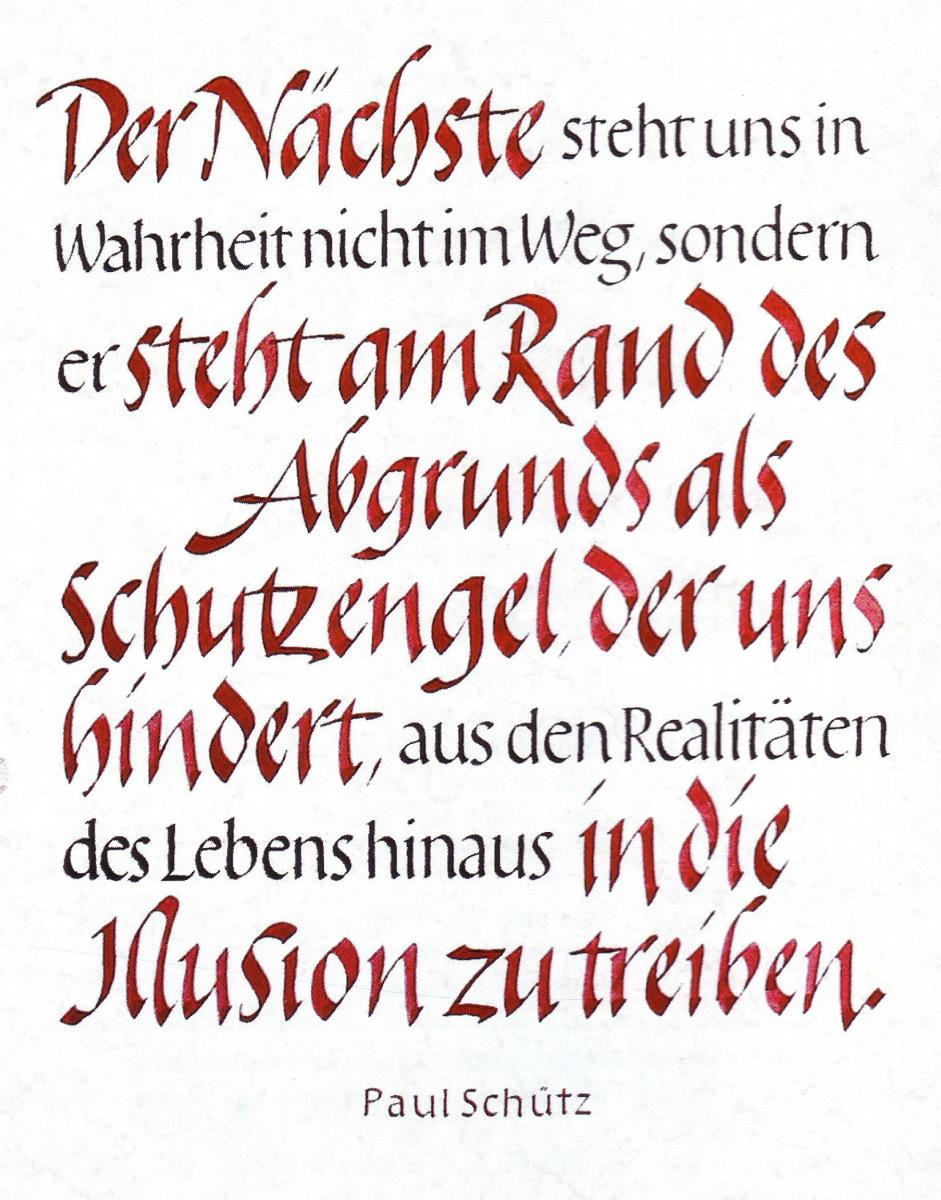 Der Nächste steht uns in
Wahrheit nicht im Weg, sondern
er steht am Rand des
Abgrunds als
Schutzengel, der uns
hindert, aus den Realitäten
des Lebens hinaus in die
Illusion zu treiben.
Paul Schütz